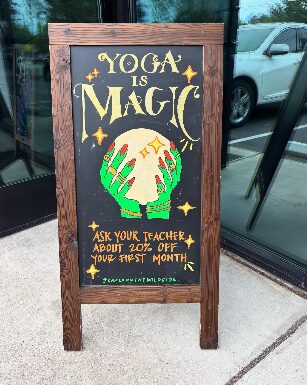 YOGA
IS
MAGIC
ASK YOUR TEACHER
ABOUT 20% OFF
YOUR FIRST MONTH